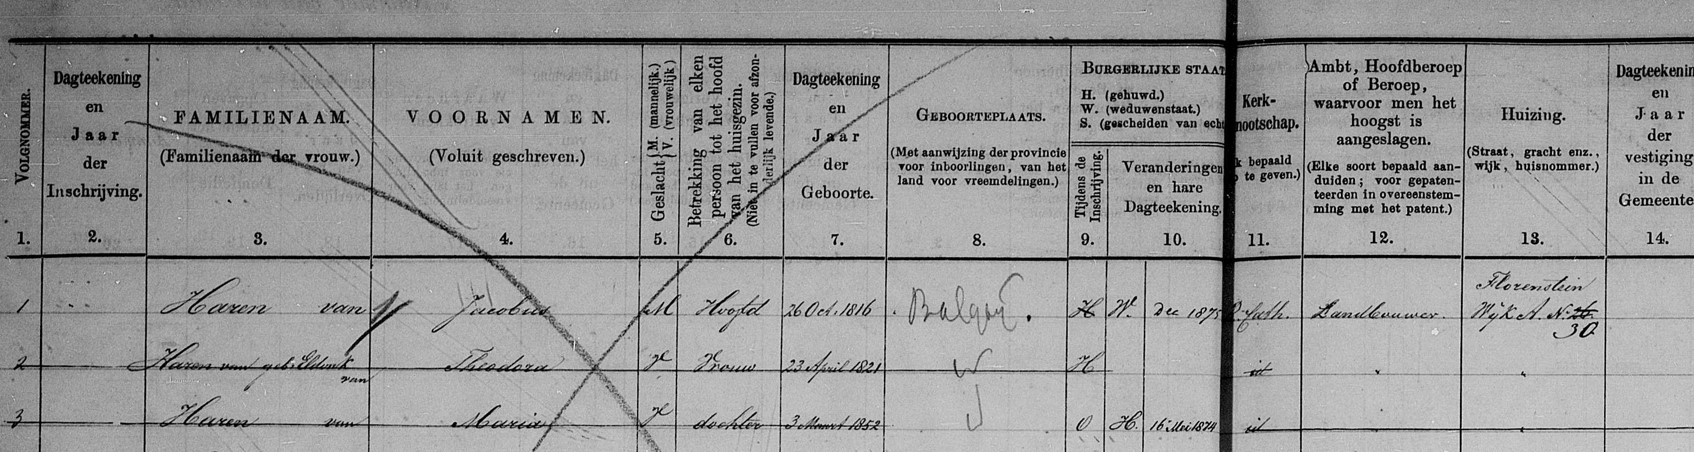 VOLGNOMMER.
Dagteekening
en
Jaar
der
Inschrijving.
FAMILIENAAM.
(Familienaam der vrouw.)
VOORNAMEN.
(Voluit geschreven.)
Geslacht M. (mannelijk.) V. (vrouwelijk)
Betrekking van elken
persoon tot het hoofd
van het huisgezin.
(Niet in te vullen voor afzon-
derlijk levende.)
Dagteekening
en
Jaar
der
Geboorte.
GEBOORTEPLAATS.
(Met aanwijzing der provincie
voor inboorlingen, van het
land voor vreemdelingen.)
BURGERLIJKE STAAT
H. (gehuwd.)
W. (weduwenstaat.)
S. (gescheiden van echt
Tijdens de
Inschrijving.
Veranderingen
en hare
Dagteekening.
Kerk-
nootschap.
k bepaald
te geven.)
Ambt, Hoofdberoep
of Beroep,
waarvoor men het
hoogst is
aangeslagen.
(Elke soort bepaald aan-
duiden; voor gepaten-
teerden in overeenstem-
ming met het patent.)
Huizing.
(Straat, gracht enz.,
wijk, huisnommer.)
Dagteekenin
en
Jaar
der
vestiging
in de
Gemeente
1. 2. 3. 4. 5. 6. 7. 8. 9. 10. 11. 12. 13. 14.
Florenstein
1 Haren van Jacobus M Hoofd 26 Oct. 1816 Balgoij. H W. Dec 1875 R. Cath. Landbouwer. Wijk A. No
30
2 Haren van geb. van Theodora V Vrouw 23 April 1821 H id "
3 Haren van Maria V dochter 3 Maart 1852 O H. 16 Mei 1874 id